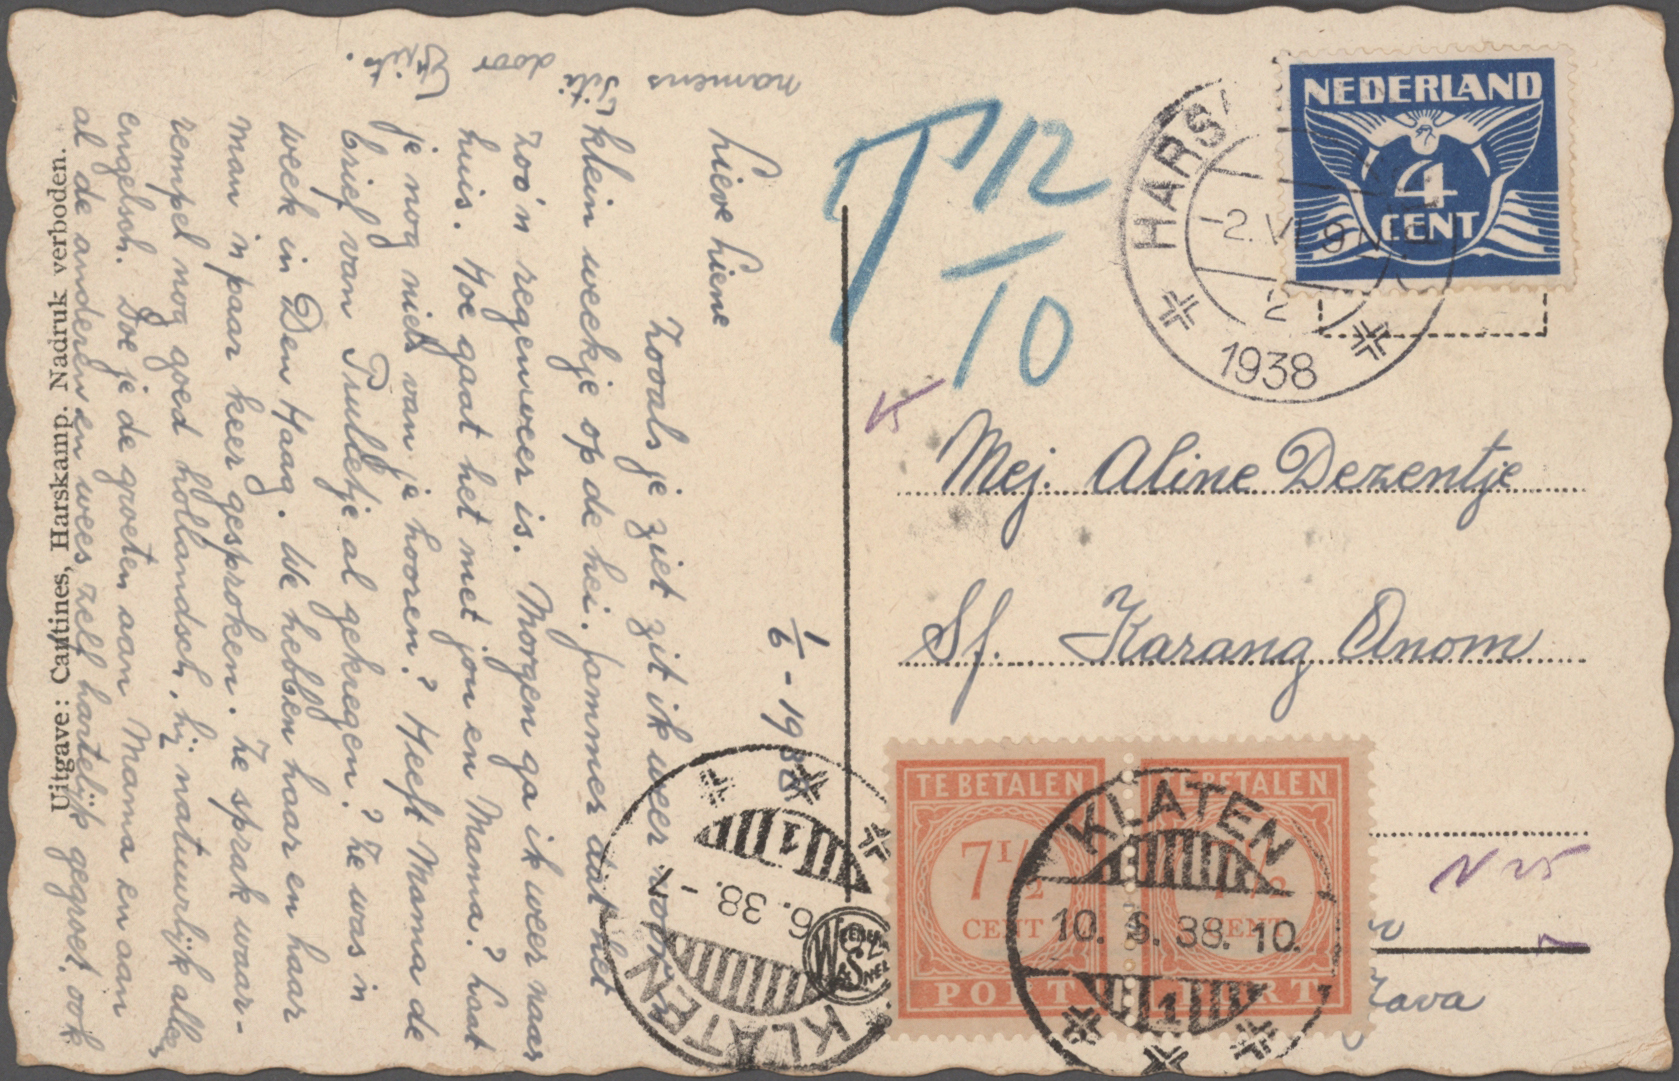 1/6 - 1938
Lieve Liene
Zooals je ziet zit ik weer voor
klein weekje op de hei. Jammer dat het
zoo'n regenweer is. Morgen ga ik weer naar
huis. Hoe gaat het met jou en Mama? Laat
je nog niets van je hooren? Heeft Mama de
brief van Prulletje al gekregen? Ze was in
week in Den Haag. We hebben haar en haar
man 'n paar keer gesproken. Ze sprak waar-
rempel nog goed hollandsch, hij natuurlijk alles
engelsch. Doe je de groeten aan Mama en aan
al de anderen en wees zelf hartelijk gegroet, ook
namens
door
Uitgave: Cantines, Harskamp. Nadruk verboden.
T 12/10
NEDERLAND
4
CENT
HARS
-2.VI.9
2
1938
Mej. Aline Dezentje
Sf. Karang Anom
N 15
Java
TE BETALEN
7 1/2
CENT
PORT
TE BETALEN
7 1/2
CENT
PORT
KLATEN
10. 6. 38. 10.
1
KLATEN
6. 38. -
1
WEENEN
& SNEL